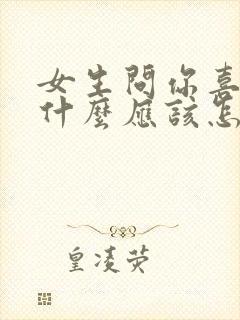 女生問你喜
什麼應該怎
皇凌荧